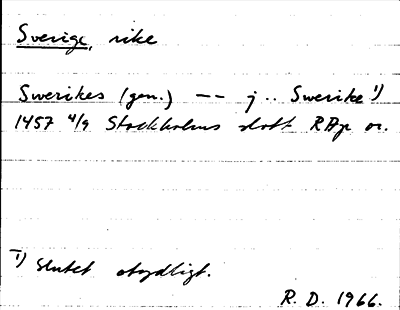 Sverige, rike
Swerikes (gen.) -- j .. Swerike 1)
1457 4/9 Stockholms slott RAp or.
1) Slutet otydligt.
R. D. 1966.